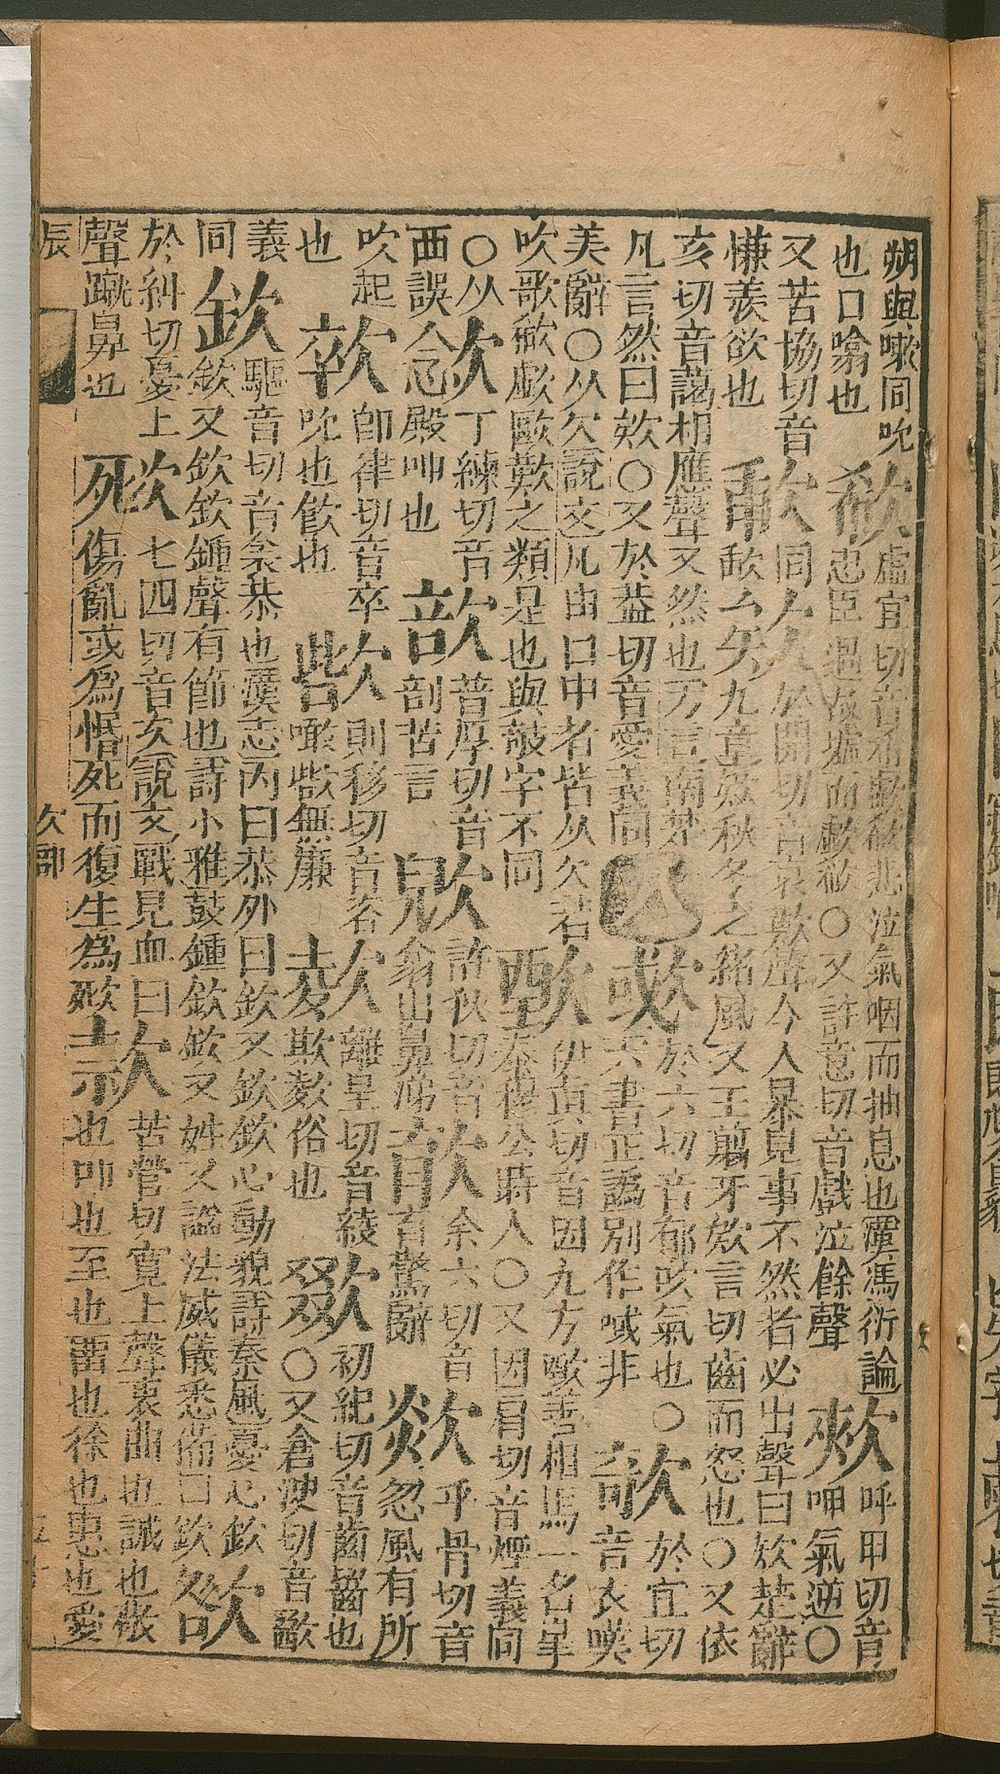 朔與嗽同吮欷虛宜切音希歔欷悲泣氣咽而抽息也漢馮衍論呼甲切音
也口噏也忠臣過故墟而歔欷○又許意切音戲泣餘聲呷氣逆○
又苦協切音同欸於開切音哀歎聲今人暴見事不然者必出聲曰欸楚辭
慊羨欲也九章欸秋冬之緒風又王翦牙欸言切齒而怒也○又依
亥切音藹相應聲又然也方言南楚於六切音郁吹氣也○欹於宜切
凡言然曰欸○又於葢切音愛義同六書正譌別作喊非音衣嘆
美辭○从欠說文凡由口中者皆从欠若歅伊真切音因九方歅善相馬一名皋
吹歌欷歔歐歎之類是也與攲字不同秦穆公時人○又因肩切音煙義同
○从丁練切音普厚切音許救切音余六切音欻乎骨切音
西誤殿呻也剖苦言翁出鼻涕育驚辭忽風有所
吹起即律切音卒則移切音咨離呈切音綾初紀切音齒齧也
也吮也歃也無廉欺俗也○又倉切音
義欽驅音切音衾恭也漢志內曰恭外曰欽又欽欽心動貌詩秦風憂心欽
同欽又欽欽鍾聲有節也詩小雅鼓鍾欽欽又姓又謚法威儀悉備曰欽
於糾切憂上七四切音次說文戰見血曰款苦管切寬上聲衷曲也誠也
聲蹴鼻也傷亂或為惛死而復生為也叩也至也畱也徐也惠也愛
辰 欠部